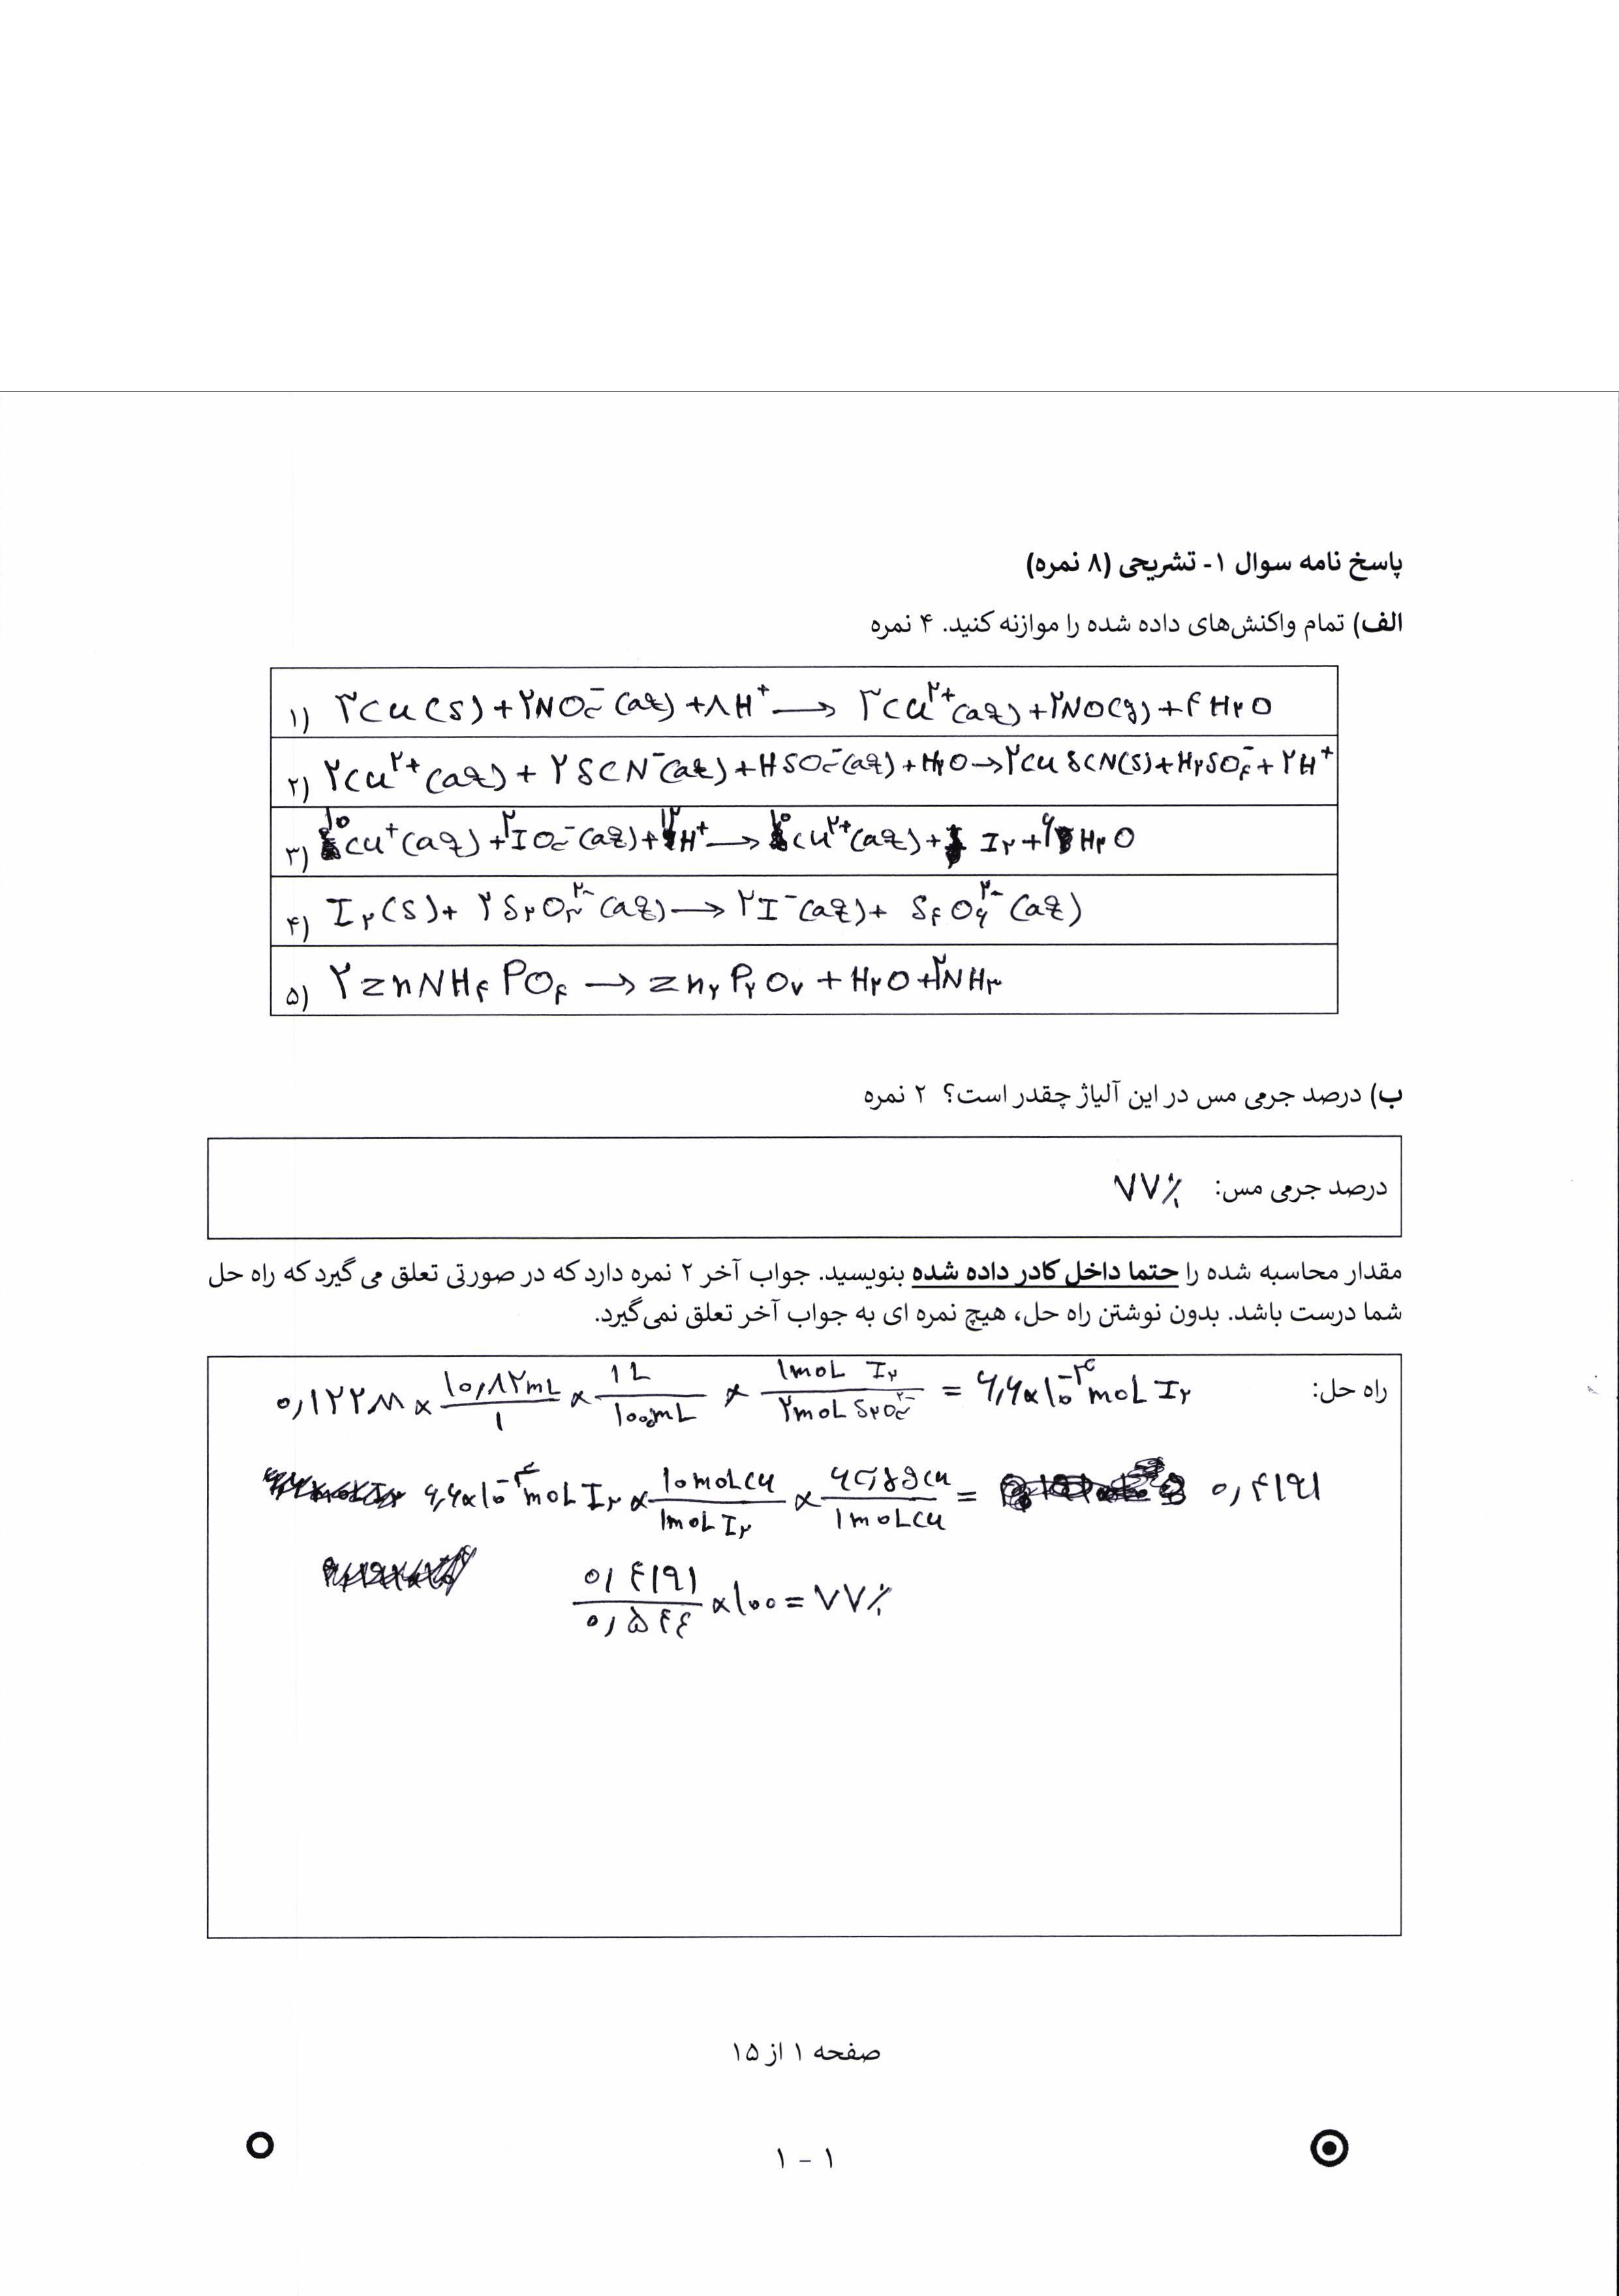 پاسخ نامه سوال ۱- تشریحی (۸ نمره)
الف) تمام واکنش‌های داده شده را موازنه کنید. ۴ نمره
۱) ۳Cu(s) + ۲NO₃⁻(aq) + ۸H⁺ → ۳Cu²⁺(aq) + ۲NO(g) + ۴H₂O
۲) ۲Cu²⁺(aq) + ۲SCN⁻(aq) + HSO₃⁻(aq) + H₂O → ۲CuSCN(s) + H₂SO₄⁻ + ۲H⁺
۳) ۱۰Cu⁺(aq) + ۲IO₃⁻(aq) + ۱۲H⁺ → ۱۰Cu²⁺(aq) + I₂ + ۶H₂O
۴) I₂(s) + ۲S₂O₃²⁻(aq) → ۲I⁻(aq) + S₄O₆²⁻(aq)
۵) ۲ZnNH₄PO₄ → Zn₂P₂O₇ + H₂O + ۲NH₃
ب) درصد جرمی مس در این آلیاژ چقدر است؟ ۲ نمره
درصد جرمی مس: ۷۷٪
مقدار محاسبه شده را حتما داخل کادر داده شده بنویسید. جواب آخر ۲ نمره دارد که در صورتی تعلق می گیرد که راه حل
شما درست باشد. بدون نوشتن راه حل، هیچ نمره ای به جواب آخر تعلق نمی‌گیرد.
راه حل:
۰٫۱۲۲M × ۱۰٫۸۲mL/۱ × ۱L/۱۰۰۰mL × ۱moL I₂/۲moL S₂O₃²⁻ = ۶٫۶×۱۰⁻⁴ moL I₂
۶٫۶×۱۰⁻⁴ moL I₂ × ۱۰moLCu/۱moL I₂ × ۶۳٫۵gCu/۱moLCu = ۰٫۴۱۹۱
۰٫۴۱۹۱/۰٫۵۴۴ × ۱۰۰ = ۷۷٪
صفحه ۱ از ۱۵
۱ - ۱